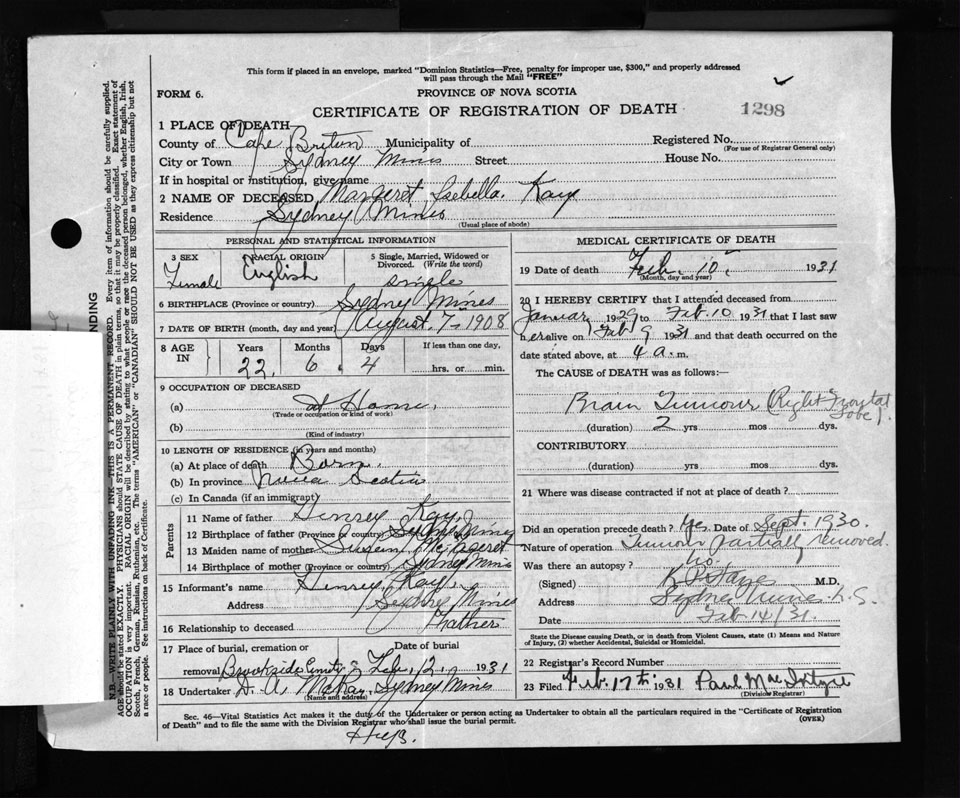 This form if placed in an envelope, marked "Dominion Statistics—Free, penalty for improper use, $300," and properly addressed
will pass through the Mail "FREE"
FORM 6.
PROVINCE OF NOVA SCOTIA
CERTIFICATE OF REGISTRATION OF DEATH
1298
1 PLACE OF DEATH
County of Cape Breton Municipality of
Registered No.
(For use of Registrar General only)
City or Town Sydney Mines Street House No.
If in hospital or institution, give name
2 NAME OF DECEASED Margeret Isebella. Kay
Residence Sydney Mines
(Usual place of abode)
PERSONAL AND STATISTICAL INFORMATION
3 SEX RACIAL ORIGIN 5 Single, Married, Widowed or
Divorced. (Write the word)
Female English single
6 BIRTHPLACE (Province or country) Sydney Mines
7 DATE OF BIRTH (month, day and year) August. 7-1908
8 AGE IN Years Months Days If less than one day,
22. 6. 4 hrs. or min.
9 OCCUPATION OF DECEASED
(a) at Home.
(Trade or occupation or kind of work)
(b)
(Kind of industry)
10 LENGTH OF RESIDENCE (in years and months)
(a) At place of death Born.
(b) In province Nova Scotia
(c) In Canada (if an immigrant)
Parents
11 Name of father Henrey Kay.
12 Birthplace of father (Province or country) Sydney Mines
13 Maiden name of mother
14 Birthplace of mother (Province or country) Sydney Mines
15 Informant's name Henrey Kay.
Address Sydney Mines
16 Relationship to deceased Father
17 Place of burial, cremation or Date of burial
removal Brookside Feb. 12. 1931
18 Undertaker D. A. McKay. Sydney Mines
(Name and address)
MEDICAL CERTIFICATE OF DEATH
19 Date of death Feb. 10. 1931
(Month, day and year)
20 I HEREBY CERTIFY that I attended deceased from
January 1929 to Feb. 10 1931 that I last saw
her alive on Feb 9 1931 and that death occurred on the
date stated above, at 4 a. m.
The CAUSE of DEATH was as follows:—
Brain Tumour (Right Frontal
Lobe).
(duration) 2 yrs mos dys.
CONTRIBUTORY
(duration) yrs mos dys.
21 Where was disease contracted if not at place of death?
Did an operation precede death? Yes. Date of Sept. 1930.
Nature of operation Tumour partially removed.
Was there an autopsy? No.
(Signed) M.D.
Address Sydney Mines. N.S.
Date Feb 14/31.
State the Disease causing Death, or in death from Violent Causes, state (1) Means and Nature
of Injury, (2) whether Accidental, Suicidal or Homicidal.
22 Registrar's Record Number
23 Filed Feb. 17th 1931 Paul MacIntyre
(Division Registrar)
Sec. 46—Vital Statistics Act makes it the duty of the Undertaker or person acting as Undertaker to obtain all the particulars required in the "Certificate of Registration
of Death" and to file the same with the Division Registrar who shall issue the burial permit.
(OVER)
NDING
N.B.—WRITE PLAINLY WITH UNFADING INK—THIS IS A PERMANENT RECORD. Every item of information should be carefully supplied.
AGE should be stated EXACTLY. PHYSICIANS should STATE CAUSE OF DEATH in plain terms, so that it may be properly classified. Exact statement of
OCCUPATION is very important. RACIAL ORIGIN will be described by stating to what people or race the deceased person belonged, whether English, Irish,
Scotch, French, German, Russian, Ruthenian, etc. The terms "AMERICAN" or "CANADIAN" SHOULD NOT BE USED as they express citizenship but not
a race or people. See instructions on back of Certificate.